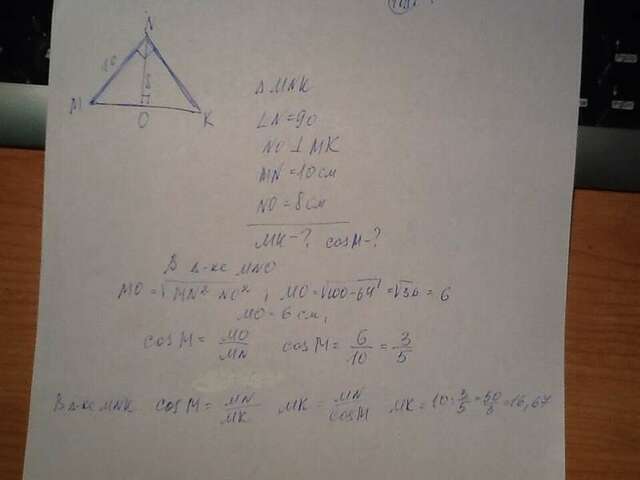 N
10
8
M
O
K
Δ MNK
∠N=90
NO ⊥ MK
MN=10см
NO=8см
MK-? cosM-?
В Δ-ке MNO
MO=√MN²-NO² ; MO=√100-64=√36=6
MO=6см,
cosM=MO/MN cosM=6/10=3/5
В Δ-ке MNK cosM=MN/MK MK=MN/cosM MK=10:3/5=50/3=16,67